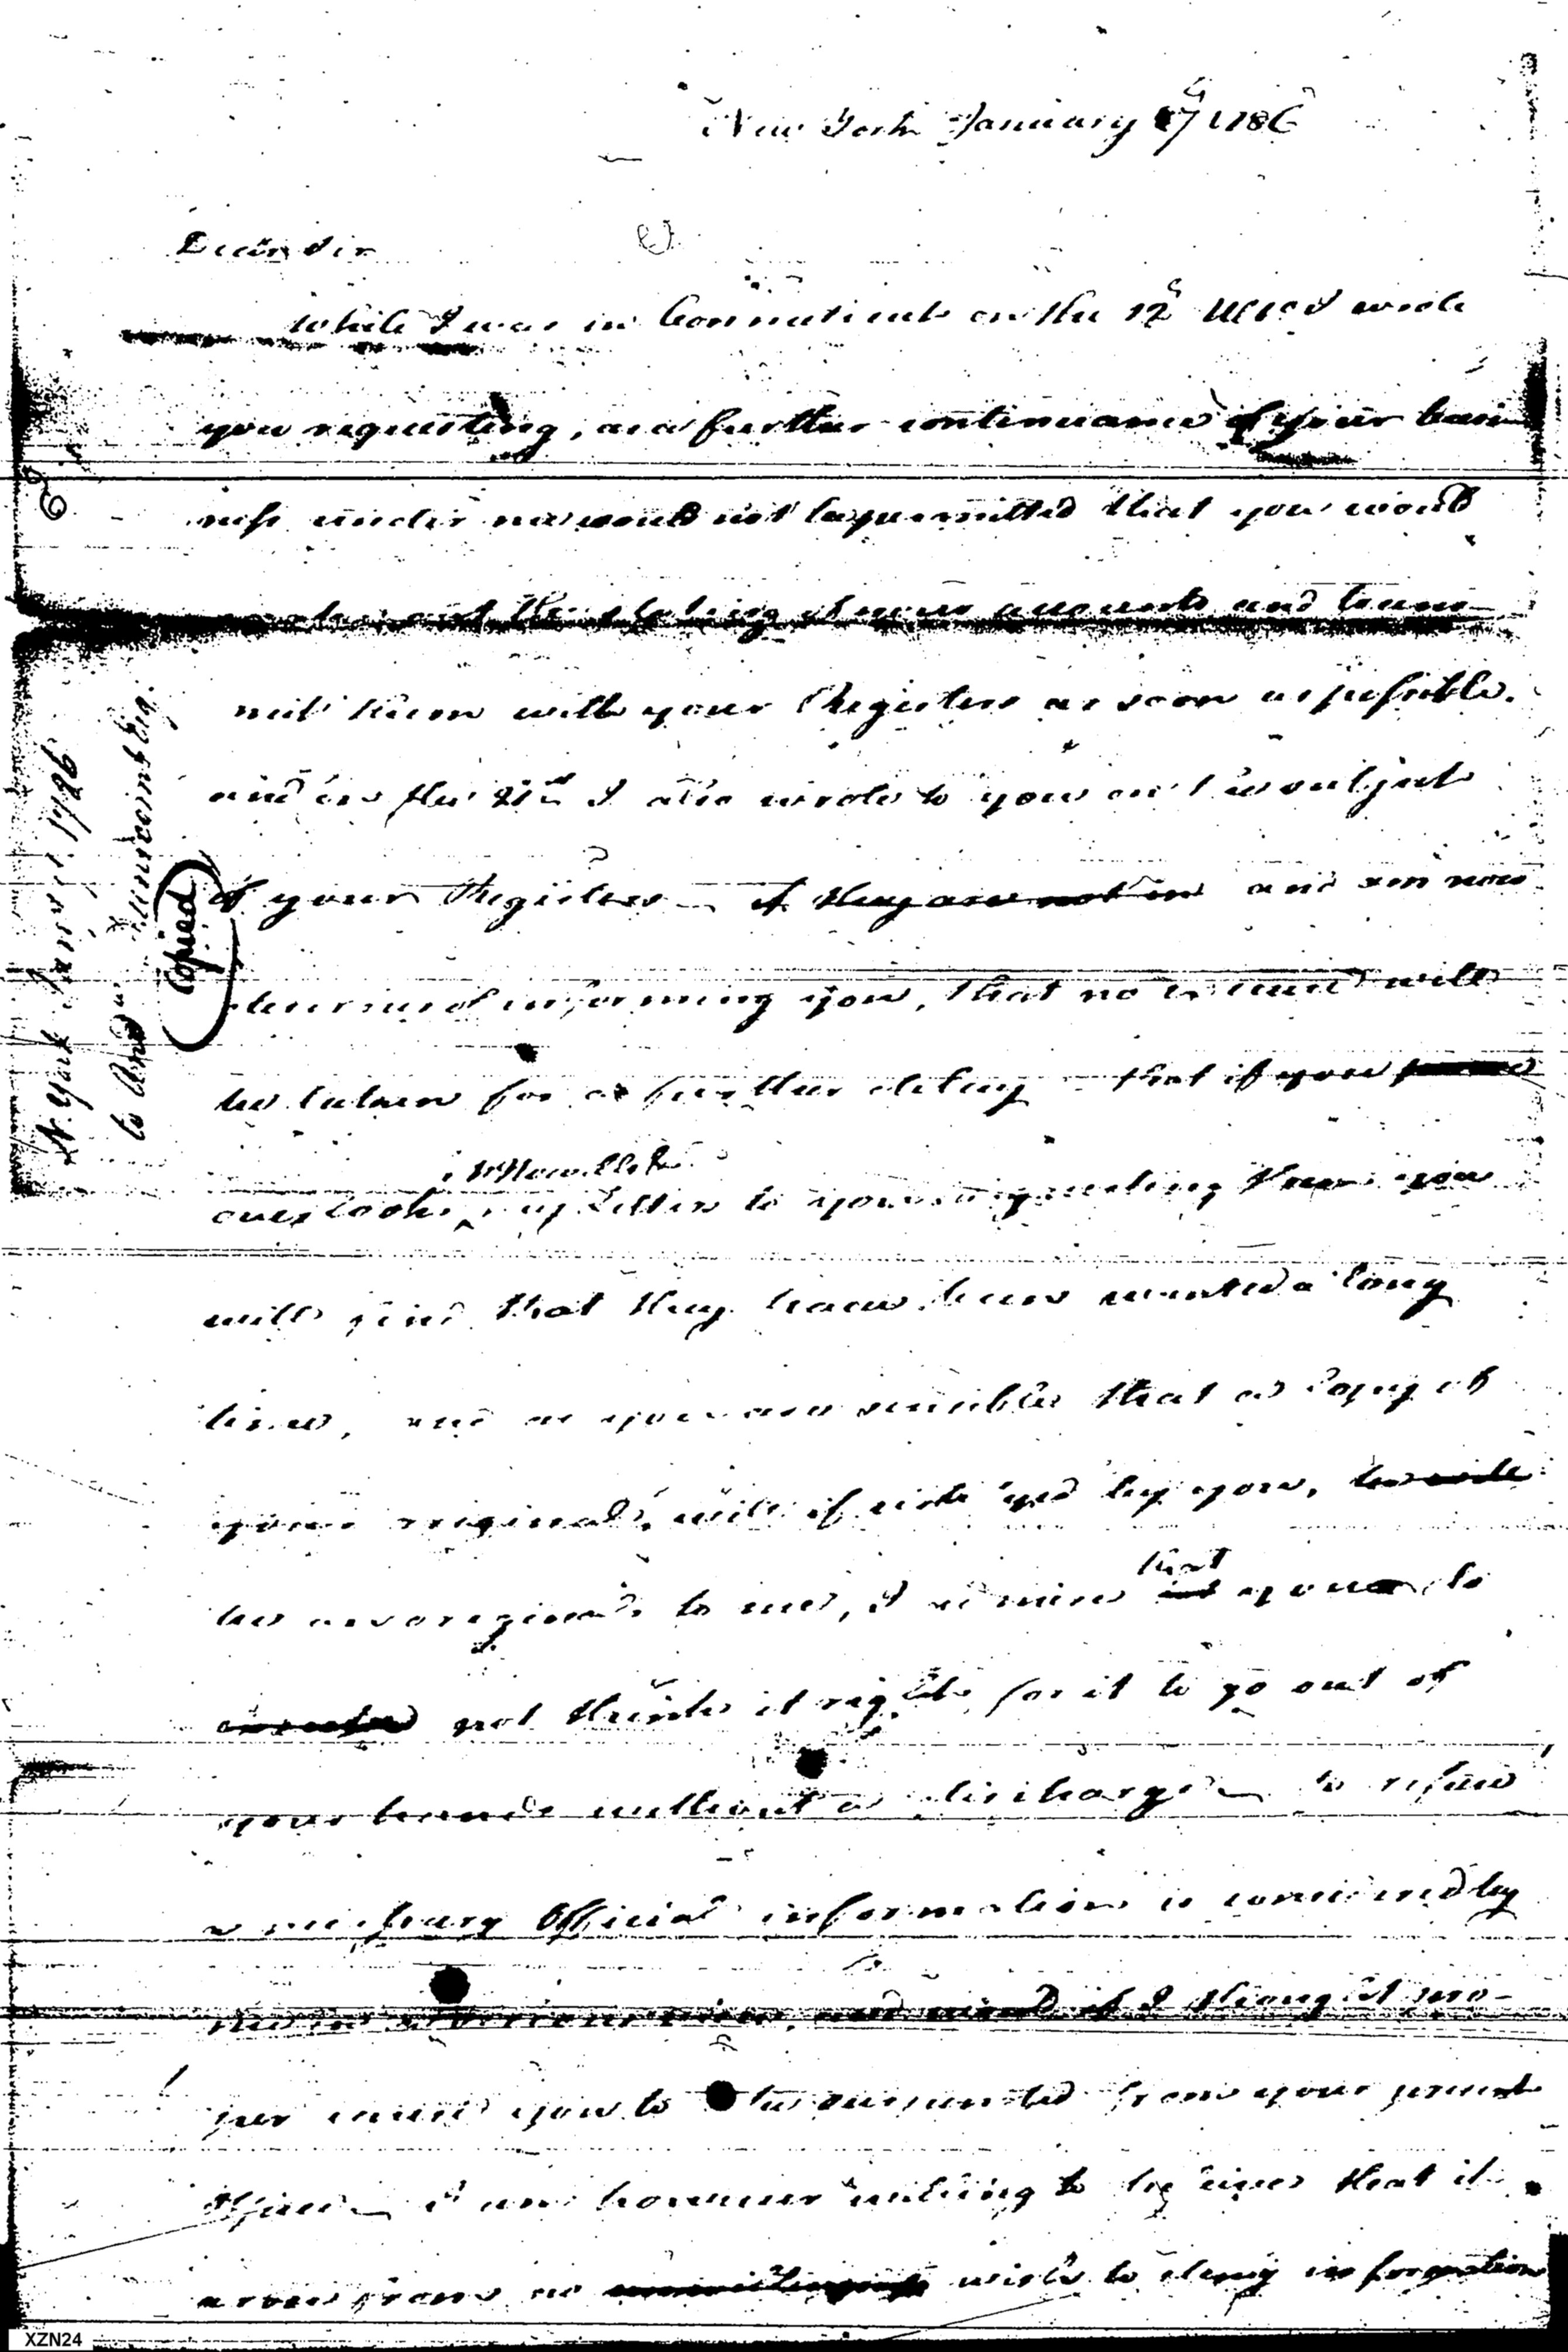 New York January 17 1786
Dear Sir
While I was in Connecticut on the 12th Ulto I wrote
you requesting, as a further continuance of your busi
ness under me would not be permitted that you would
the stating of your accounts and trans-
mit them with your Registers as soon as possible.
and on the 21st I also wrote to you on the subject
of your Registers — if they are not in and am now
informing you, that no excuse will
be taken for a further delay — that if you
Mr Howell &
overlook my Letters to you requesting them you
will find that they have been wanted a long
time, and as you are sensible that a Copy of
your originals, will if certifyed by you, be
that
be as original to me, I admire you do
not think it right for it to go out of
your hands without a discharge — to refuse
a necessary Official information is considered by
me in a serious view, and would if I thought pro-
per cause you to be suspended from your present
Office — I am however willing to believe that it
arose from no wish to deny information
N. York Jany 1786
to Andw Dunscomb Esq.
Copied
XZN24